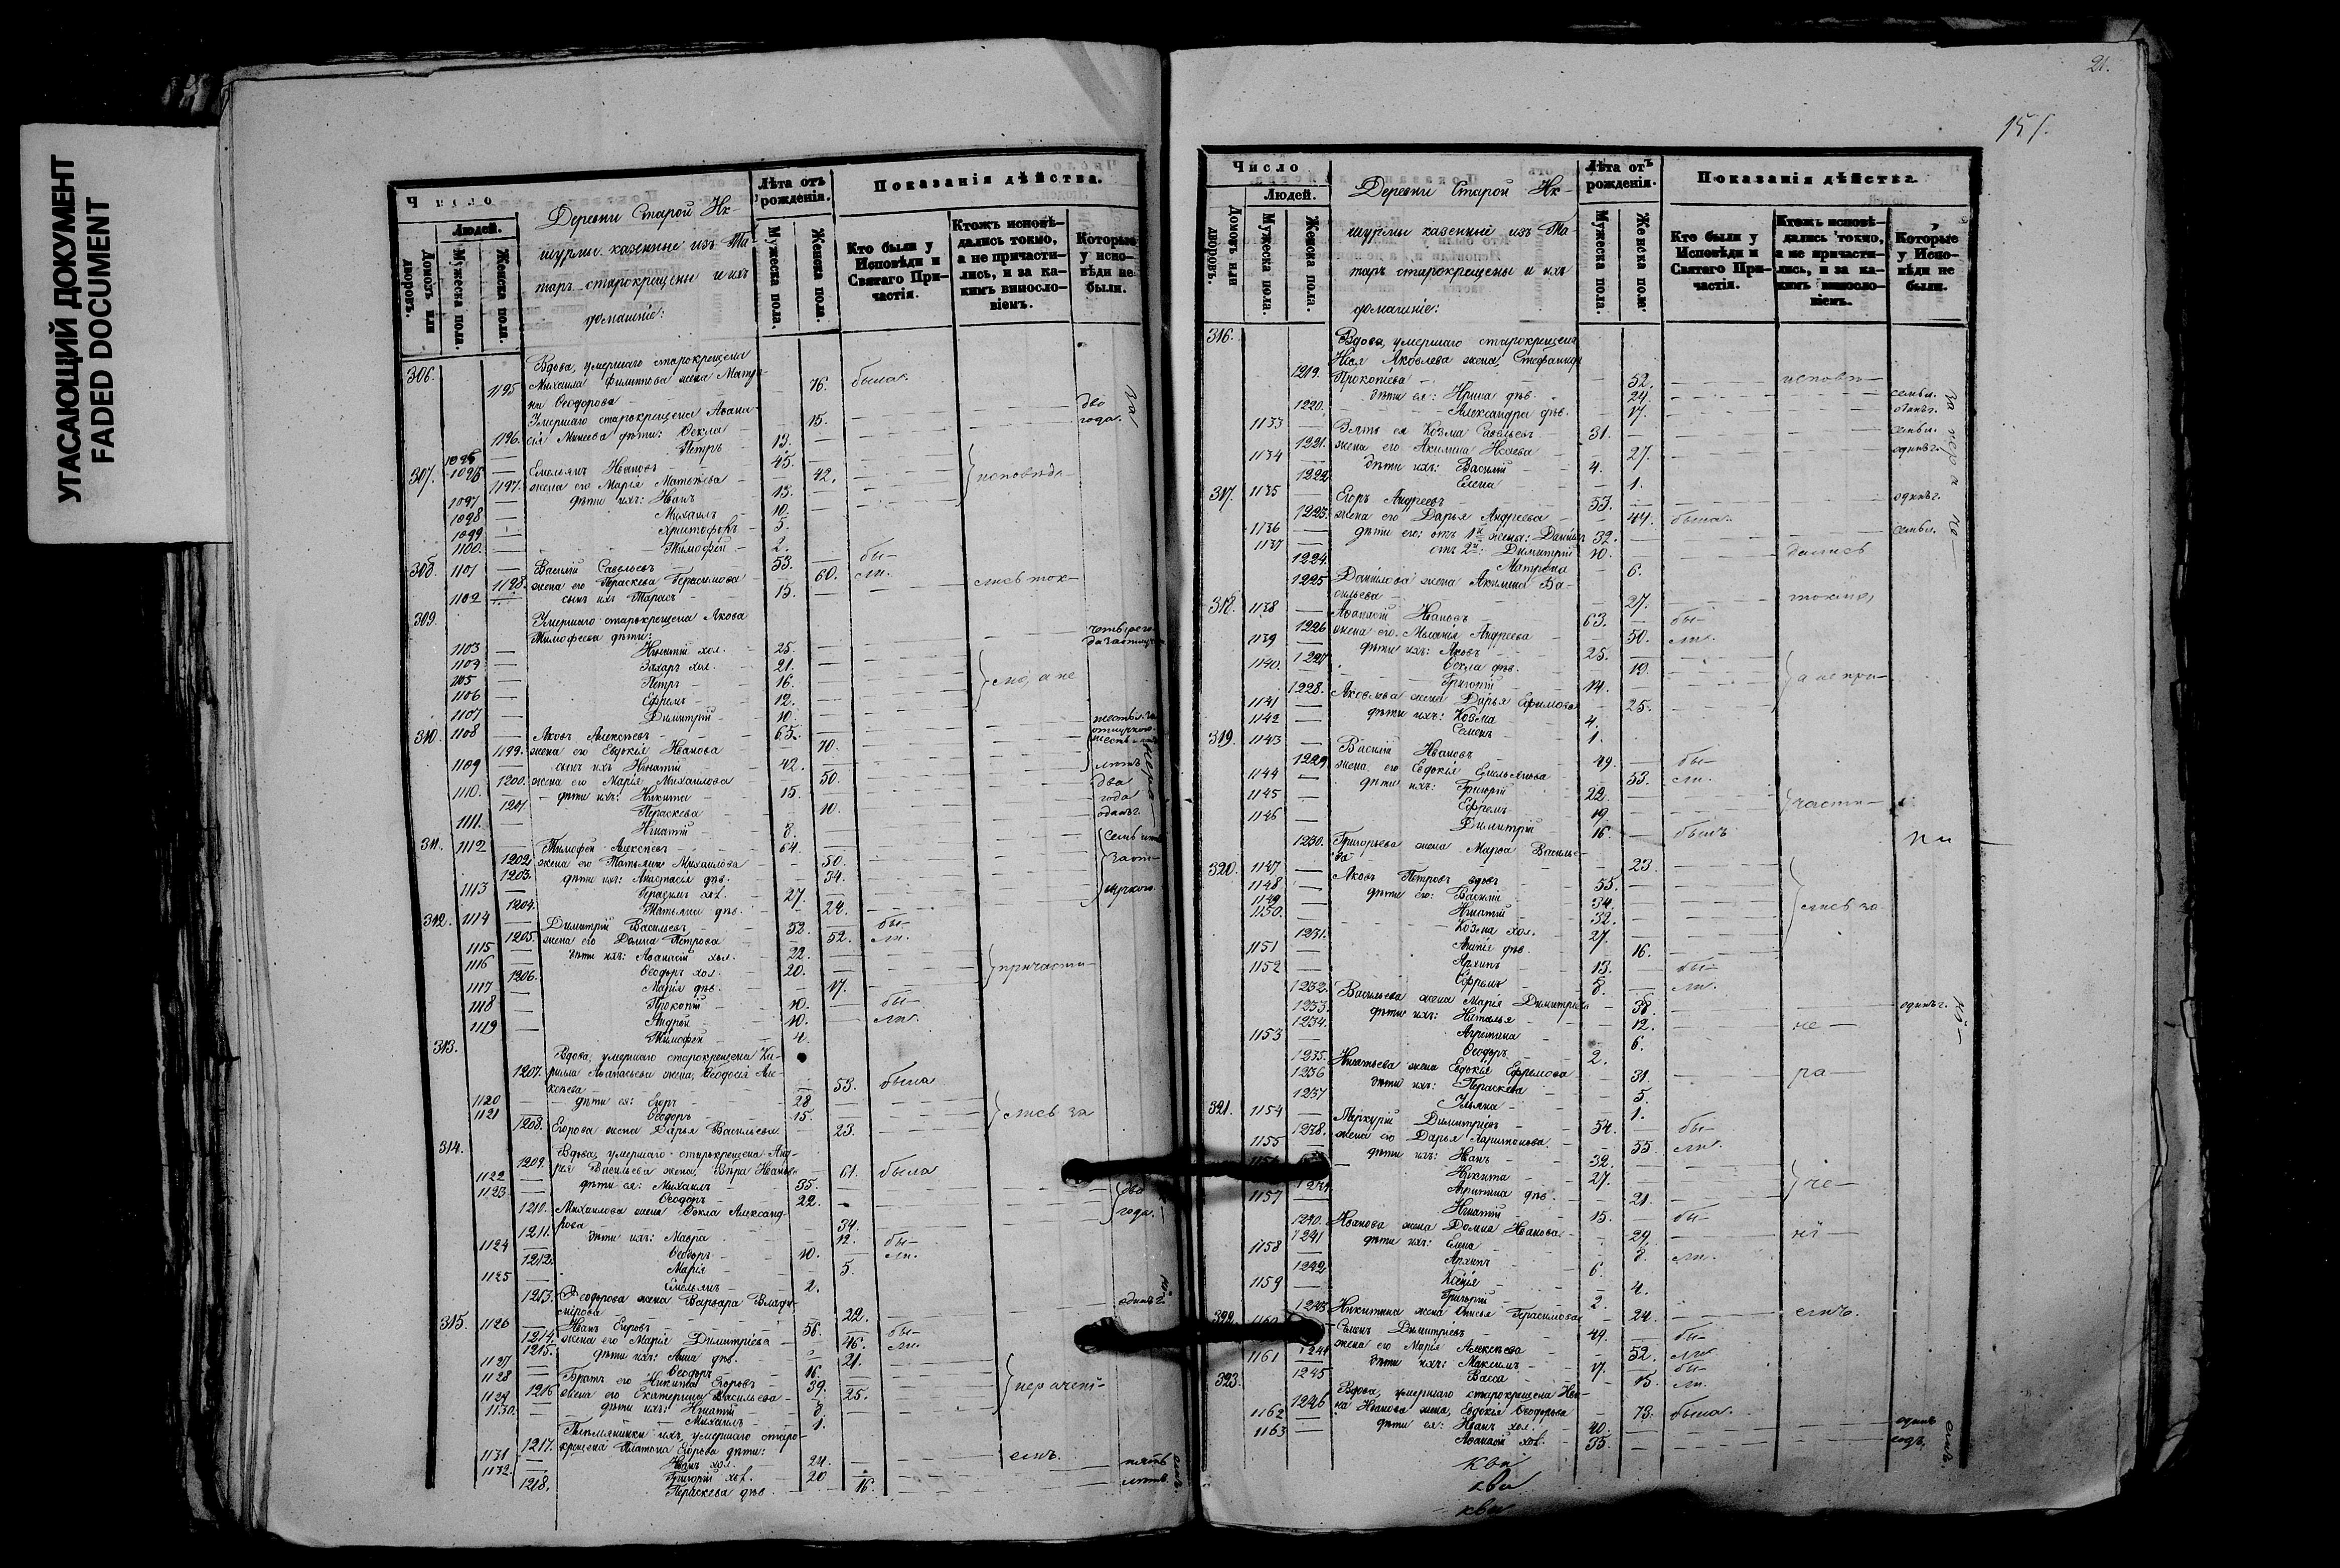 УГАСАЮЩИЙ ДОКУМЕНТ
FADED DOCUMENT
Число
Людей.
Домовъ или дворовъ.
Мужеска пола.
Женска пола.
Деревни Старой Ик-
шурмы казенные изъ Та-
таръ старокрещены и ихъ
домашніе:
Лѣта отъ рожденія.
Мужеска пола.
Женска пола.
Показанія дѣйства.
Кто были у Исповѣди и Святаго Причастія.
Ктожъ исповѣдались токмо, а не причастились, и за какимъ винословіемъ.
Которые у исповѣди не были.
306. Вдова, умершаго старокрещена
1195 Михаила Филиппова жена Матре-
на Ѳеодорова 76. была.
Умершаго старокрещена Аѳана-
1196. сія Минеева дѣти: Ѳекла 15. два года.
1095 Петръ 13.
307. 1096 Емельянъ Ивановъ 45.
1197. жена его Марія Матвѣева 42. исповѣда-
1097 дѣти ихъ: Иванъ 13.
1098 Михаилъ 10.
1099 Христофоръ 5.
1100. Тимофей 2.
308. 1101 Василій Савельевъ 53. бы-
1198. жена его Параскева Герасимова 60. ли.
1102 сынъ ихъ Тарасъ 15. лись ток-
309. Умершаго старокрещена Якова
Тимофеева дѣти:
1103 Игнатій хол. 25.
1104 Захаръ хол. 21.
1105 Петръ 16. мо, а не
1106 Ефремъ 12.
1107 Димитрій 10.
310. 1108 Яковъ Алексѣевъ 65.
1199. жена его Евдокія Иванова 70.
1109 сынъ ихъ Игнатій 42.
1200. жена его Марія Михаилова 50. два
1110. дѣти ихъ: Никита 15. года
1201 Параскева 10. одинъ г.
1111. Игнатій 8.
311. 1112 Тимофей Алексѣевъ 64.
1202 жена его Татьяна Михаилова 50.
1203. дѣти ихъ: Анастасія дѣв. 34.
1113 Герасимъ хол. 27.
1204. Татьяна дѣв. 24.
312. 1114 Димитрій Васильевъ 52. бы-
1205. жена его Домна Петрова 52. ли.
1115 дѣти ихъ: Аѳанасій хол. 22.
1116 Ѳеодоръ хол. 20. причасти-
1206. Марія дѣв. 17.
1117 Прокопій 10. бы-
1118 Андрей 10. ли.
1119 Тимофей 4.
313. Вдова, умершаго старокрещена Ки-
1207. рилла Аѳанасьева жена, Ѳеодосія Але-
ксѣева 53. была
1120 дѣти ея: Егоръ 28
1121 Ѳеодоръ 15. лись за
1208. Егорова жена Дарья Васильева 23.
314. Вдова, умершаго старокрещена Анд-
1209. рея Васильева жена, Вѣра Иванова 61. была
1122 дѣти ея: Михаилъ 35. два
1123 Ѳеодоръ 22. года.
1210. Михаилова жена Ѳекла Александ-
рова 34.
1211. дѣти ихъ: Мавра 12. бы-
1124 Ѳеодоръ 10. ли.
1212. Марія 5.
1125 Емельянъ 2.
1213. Ѳеодорова жена Варвара Влади-
мірова 22. одинъ г.
315. 1126 Иванъ Егоровъ 56. бы-
1214. жена его Марія Димитріева 46. ли.
1215. дѣти ихъ: Анна дѣв. 21.
1127 Ѳеодоръ 16.
1128 Братъ его Никита Егоровъ 39.
1216 жена его Екатерина Васильева 25.
1129 дѣти ихъ: Игнатій 8.
1130. Михаилъ 1.
Племянники ихъ, умершаго старо-
крещена Платона Егорова дѣти:
1217.
1131 Иванъ хол. 24. пять
1132. Григорій хол. 20 лѣтъ.
1218. Параскева дѣв. 16.
21.
151.
Число
Людей.
Домовъ или дворовъ.
Мужеска пола.
Женска пола.
Деревни Старой Ик-
шурмы казенные изъ Та-
таръ старокрещены и ихъ
домашніе:
Лѣта отъ рожденія.
Мужеска пола.
Женска пола.
Показанія дѣйства.
Кто были у Исповѣди и Святаго Причастія.
Ктожъ исповѣдались токмо, а не причастились, и за какимъ винословіемъ.
Которые у Исповѣди не были.
316. Вдова, умершаго старокрещена
Яковлева жена, Стефанида
1219. Прокопіева 52. исповѣ-
дѣти ея: Ирина дѣв. 24.
1220. Александра дѣв. 17. одинъ г.
1133 Зять ея Козма Савельевъ 31.
1221. жена его Акилина 27. одинъ г.
1134 дѣти ихъ: Василій 4.
1222 Елена 1.
317. 1135 Егоръ Андреевъ 53. одинъ г.
1223. жена его Дарья Андреева 44. была.
1136 дѣти его: отъ 1й жены: Даніилъ 32.
1137 отъ 2й: Димитрій 10. дались
1224. Матрона 6.
1225 Даніилова жена Акилина Ва-
сильева 27. токмо,
318. 1138 Аѳанасій Ивановъ 63. бы-
1226 жена его Меланія Андреева 50. ли.
1139 дѣти ихъ: Яковъ 25.
1227 Ѳекла дѣв. 19.
1140. Григорій 14. а не при-
1228. Яковлева жена Дарья Ефимова 25.
1141 дѣти ихъ: Козма 4.
1142 Семенъ 1.
319. 1143 Василій Ивановъ 49. бы-
1229 жена его Евдокія Емельянова 53. ли.
1144 дѣти ихъ: Григорій 22.
1145 Ефремъ 19 части-
1146 Димитрій 16. былъ
1230. Григорьева жена Марѳа Василье-
ва 23.
320. 1147 Яковъ Петровъ вдовъ 55.
1148 дѣти его: Василій 34.
1149 Игнатій 32. лись за
1150. Козма хол. 27.
1231. дѣв. 16.
1151 Архипъ 13. бы-
1152 Ефремъ 8. ли.
1232. Васильева жена Марія Димитріева 38. одинъ г.
1233. дѣти ихъ: Наталья 12. не-
1234. Агрипина 6.
1153 Ѳеодоръ 2.
1235. Игнатьева жена Евдокія Ефремова 31. ра-
1236 дѣти ихъ: Параскева 5.
1237 Ульяна 1.
321. 1154 Меркурій Димитріевъ 54. бы-
1238. жена его Дарья Харитонова 55. ли.
1155 дѣти ихъ: Иванъ 32.
Никита 27. че-
Агрипина дѣв. 21.
1157 Игнатій 15. бы-
1240. Иванова жена Домна Иванова 29. ні-
1241 дѣти ихъ: Елена 8. ли.
1158 Архипъ 6.
1242 Ксенія 4.
1159 Григорій 2.
1243 Никитина жена Герасимова 24. емъ.
322. 1160 Семенъ Димитріевъ 49. бы-
1244 жена его Марія Алексѣева 52. ли.
1161 дѣти ихъ: Максимъ 17. бы-
1245 Васса 15. ли.
323. Вдова, умершаго старокрещена Ива-
1246 на Иванова жена, Евдокія Ѳеодорова 73. была.
1162 дѣти ея: Иванъ хол. 40. одинъ
1163 Аѳанасій хол. 35. годъ.